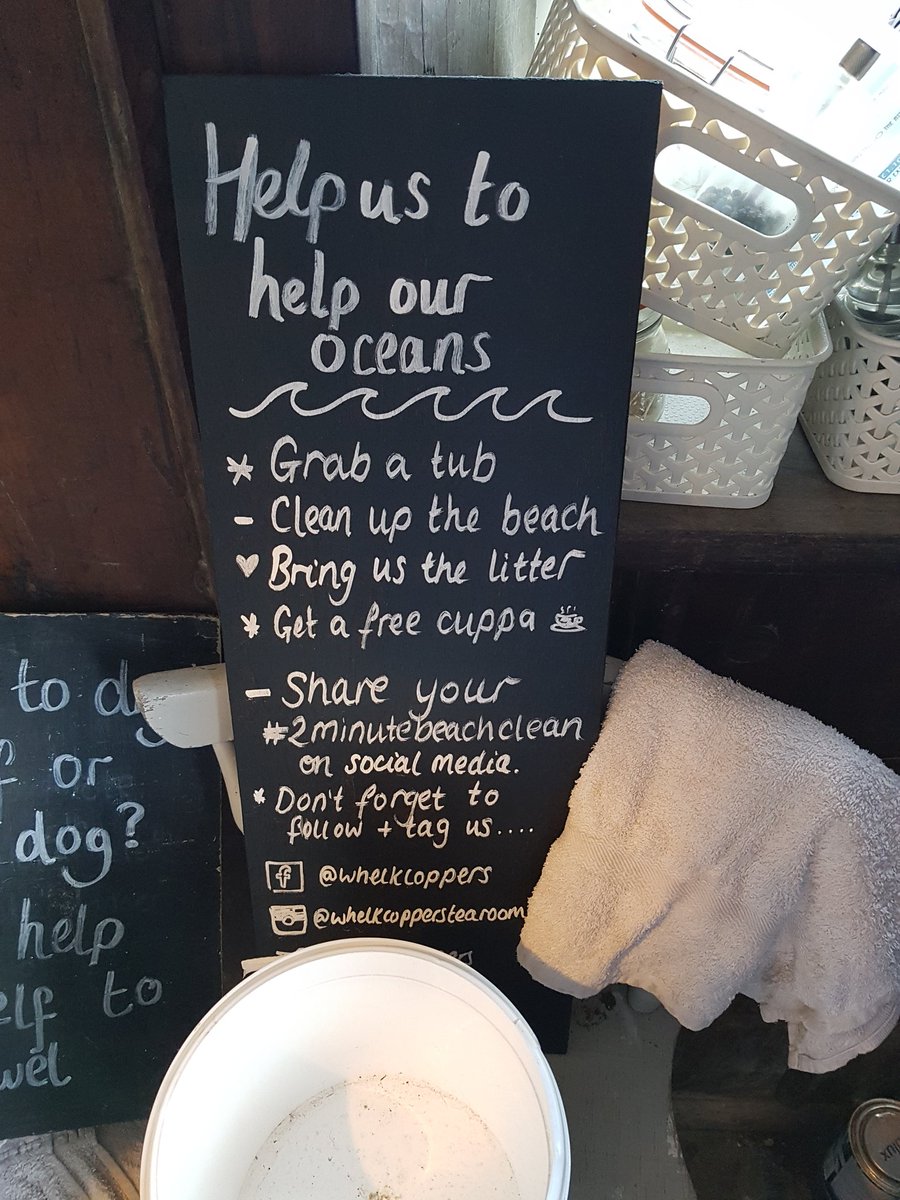 Help us to
help our
oceans
* Grab a tub
- Clean up the beach
♥ Bring us the litter
* Get a free cuppa
- Share your
#2minutebeachclean
on social media.
* Don't forget to
follow + tag us....
f @whelkcoppers
@whelkcopperstearoom
to
or
dog?
help
to